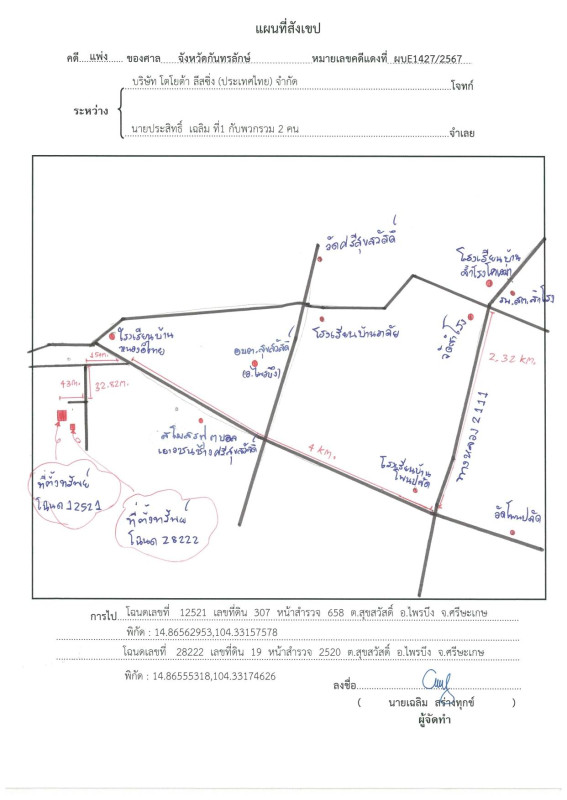 แผนที่สังเขป
คดี แพ่ง ของศาล จังหวัดกันทรลักษ์ หมายเลขคดีแดงที่ ผบE1427/2567
บริษัท โตโยต้า ลีสซิ่ง (ประเทศไทย) จำกัด โจทก์
ระหว่าง
นายประสิทธิ์ เฉลิม ที่1 กับพวกรวม 2 คน จำเลย
วัดศรีสุขสวัสดิ์
โรงเรียนบ้าน
สำโรง
รพ.สต.สำโรง
โรงเรียนบ้าน
หนองอีไทย
อบต.สุขสวัสดิ์
(อ.ไพรบึง)
โรงเรียนบ้านอาลัย
วัดสำโรง
2.32 km.
ทางหลวง 2111
25m.
43m.
32.82m.
4 km.
โรงเรียนบ้าน
โพนปลัด
วัดโพนปลัด
ที่ตั้งทรัพย์
โฉนด 12521
ที่ตั้งทรัพย์
โฉนด 28222
การไป โฉนดเลขที่ 12521 เลขที่ดิน 307 หน้าสำรวจ 658 ต.สุขสวัสดิ์ อ.ไพรบึง จ.ศรีษะเกษ
พิกัด : 14.86562953,104.33157578
โฉนดเลขที่ 28222 เลขที่ดิน 19 หน้าสำรวจ 2520 ต.สุขสวัสดิ์ อ.ไพรบึง จ.ศรีษะเกษ
พิกัด : 14.86555318,104.33174626
ลงชื่อ
( นายเฉลิม สร่างทุกข์ )
ผู้จัดทำ